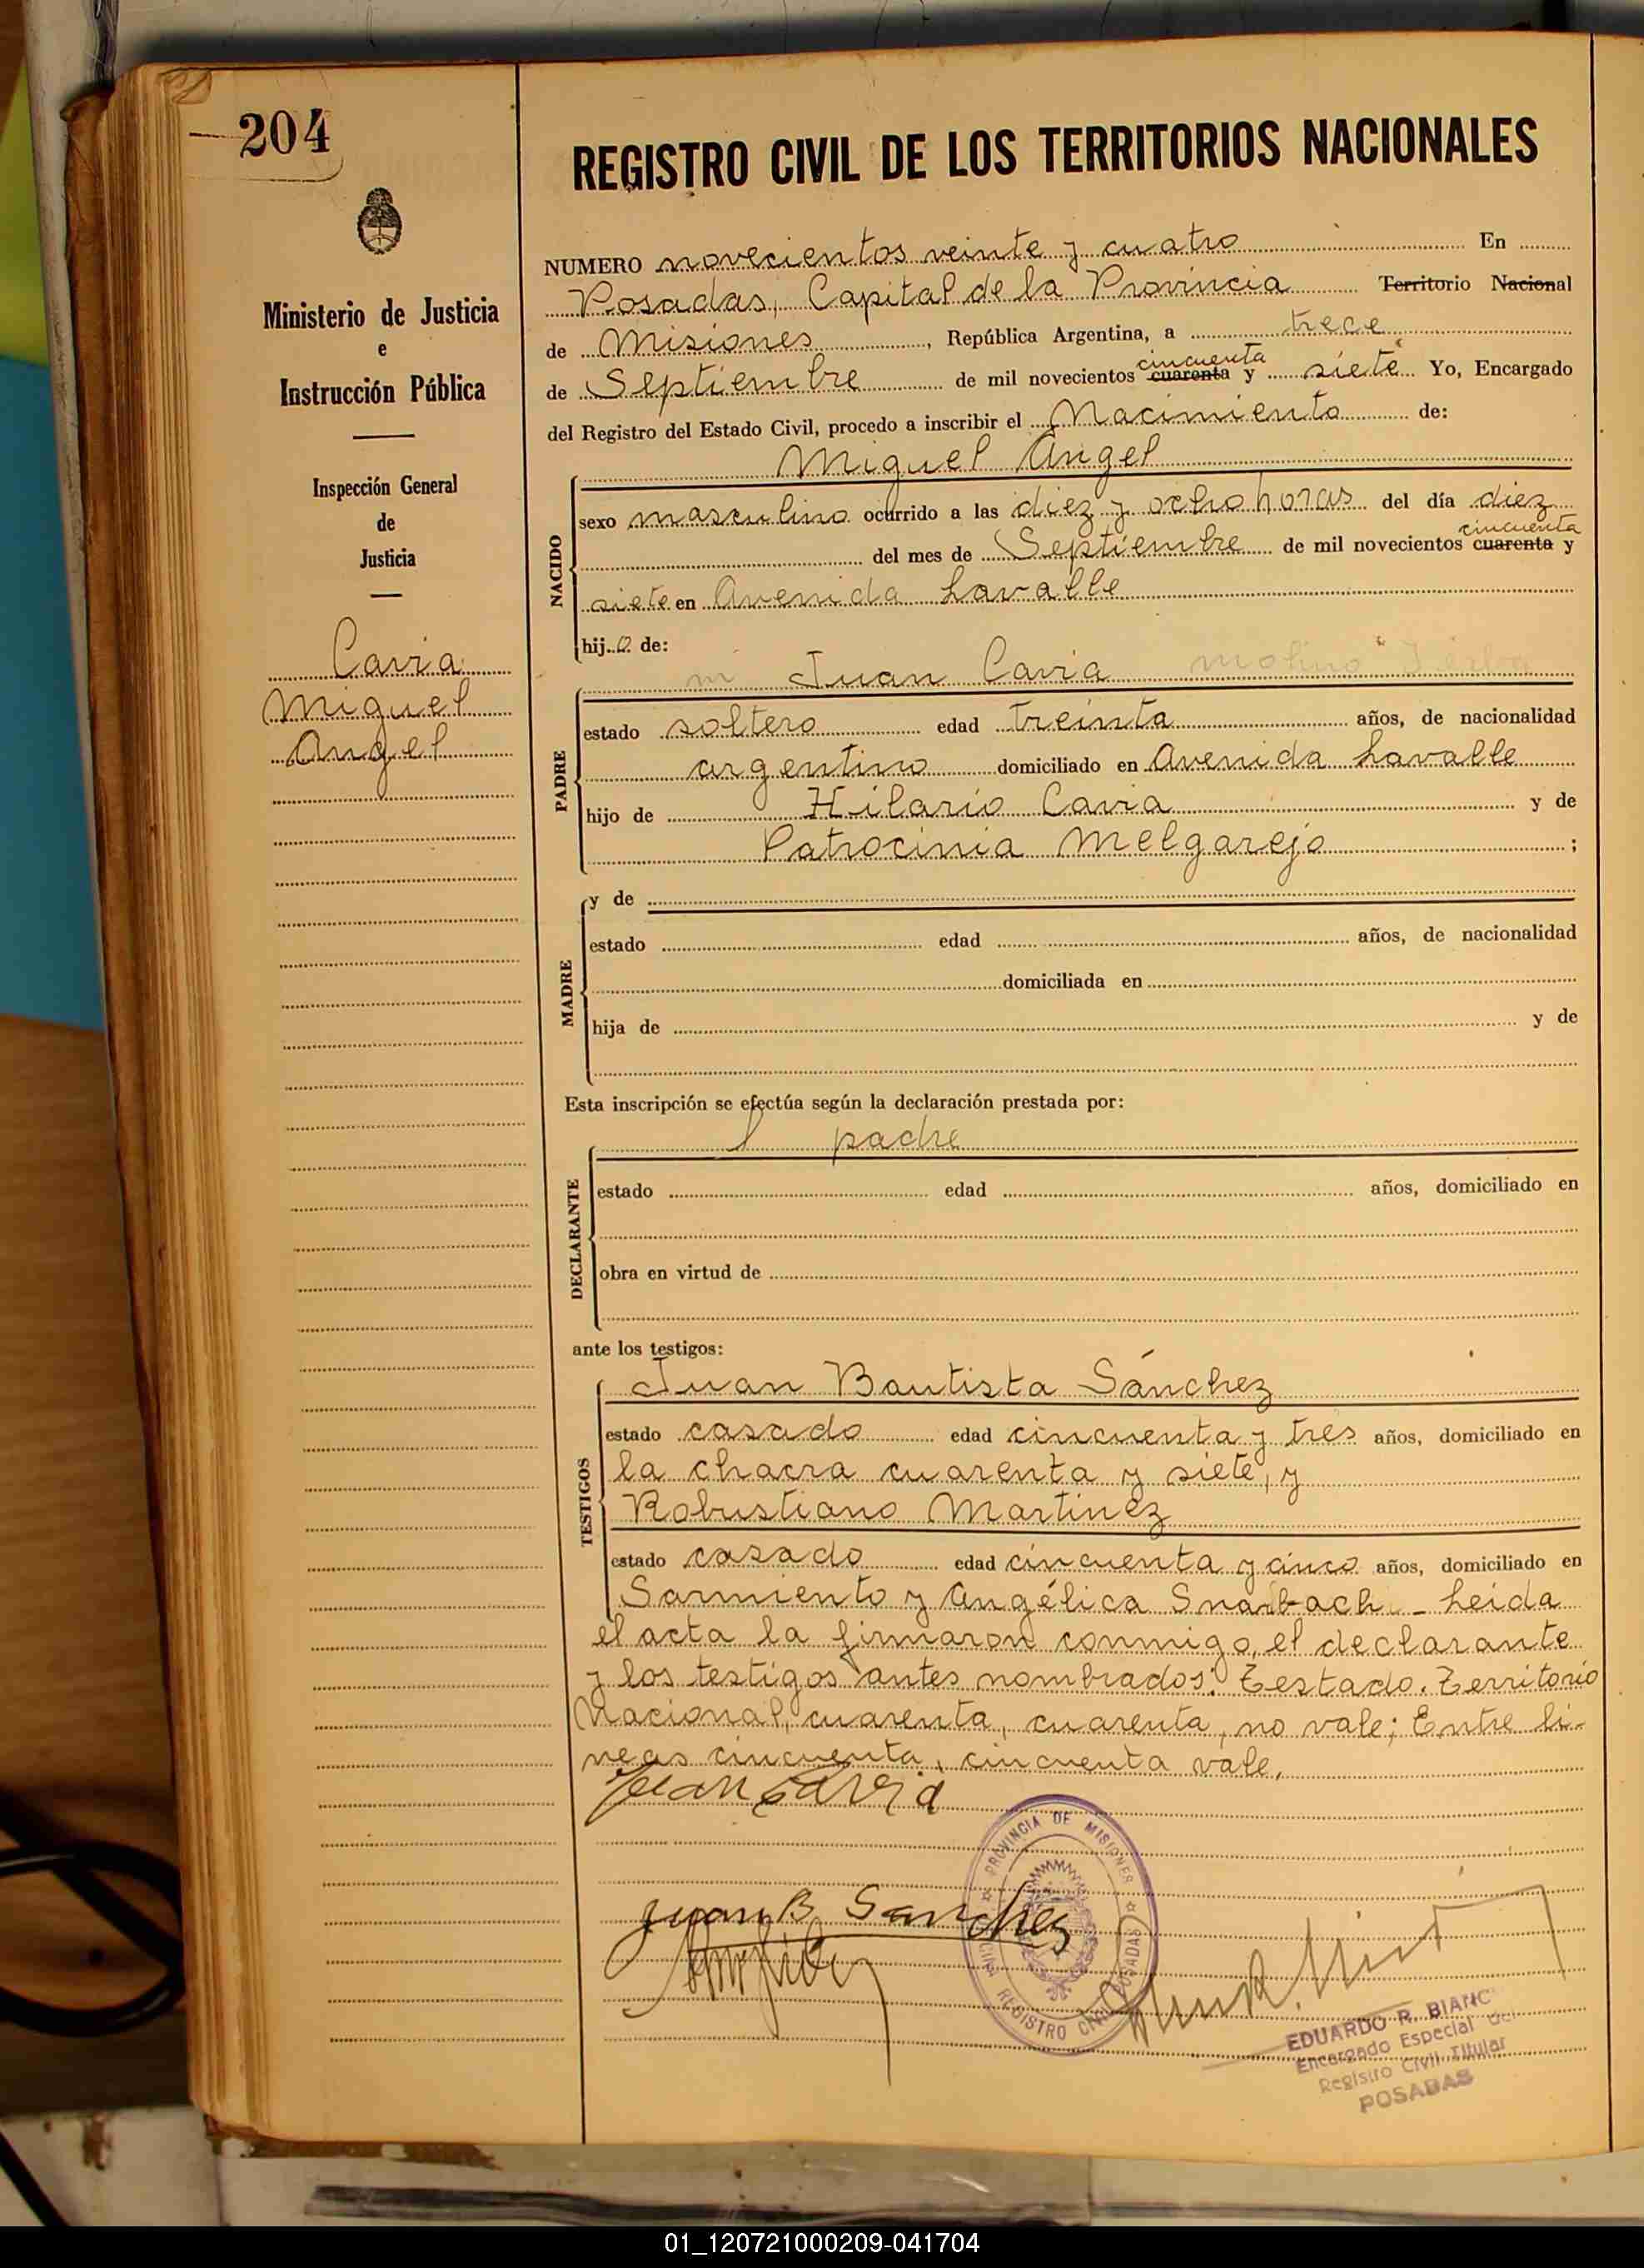 204
REGISTRO CIVIL DE LOS TERRITORIOS NACIONALES
Ministerio de Justicia
e
Instrucción Pública
Inspección General
de
Justicia
Cavia
Miguel
Angel
NUMERO novecientos veinte y cuatro En
Posadas, Capital de la Provincia Territorio Nacional
de Misiones, República Argentina, a trece
de Septiembre de mil novecientos cuarenta cincuenta y siete Yo, Encargado
del Registro del Estado Civil, procedo a inscribir el Nacimiento de:
Miguel Angel
NACIDO
sexo masculino ocurrido a las diez y ocho horas del día diez
cincuenta
del mes de Septiembre de mil novecientos cuarenta y
siete en Avenida Lavalle
hijo de:
Juan Cavia molino
PADRE
estado soltero edad treinta años, de nacionalidad
argentino domiciliado en Avenida Lavalle
hijo de Hilario Cavia y de
Patrocinia Melgarejo ;
MADRE
y de
estado edad años, de nacionalidad
domiciliada en
hija de y de
Esta inscripción se efectúa según la declaración prestada por:
l padre
DECLARANTE
estado edad años, domiciliado en
obra en virtud de
ante los testigos:
Juan Bautista Sánchez
TESTIGOS
estado casado edad cincuenta y tres años, domiciliado en
la chacra cuarenta y siete, y
Robustiano Martinez
estado casado edad cincuenta y cinco años, domiciliado en
Sarmiento y Angélica - Leida
el acta la firmaron conmigo, el declarante
y los testigos antes nombrados: Testado. Territorio
Nacional, cuarenta, cuarenta, no vale; Entre li-
neas cincuenta, cincuenta vale.
Juan Cavia
Juan B Sanchez
PROVINCIA DE MISIONES
REGISTRO CIVIL POSADAS
EDUARDO R. BIANC
Encargado Especial del
Registro Civil Titular
POSADAS
01_120721000209-041704